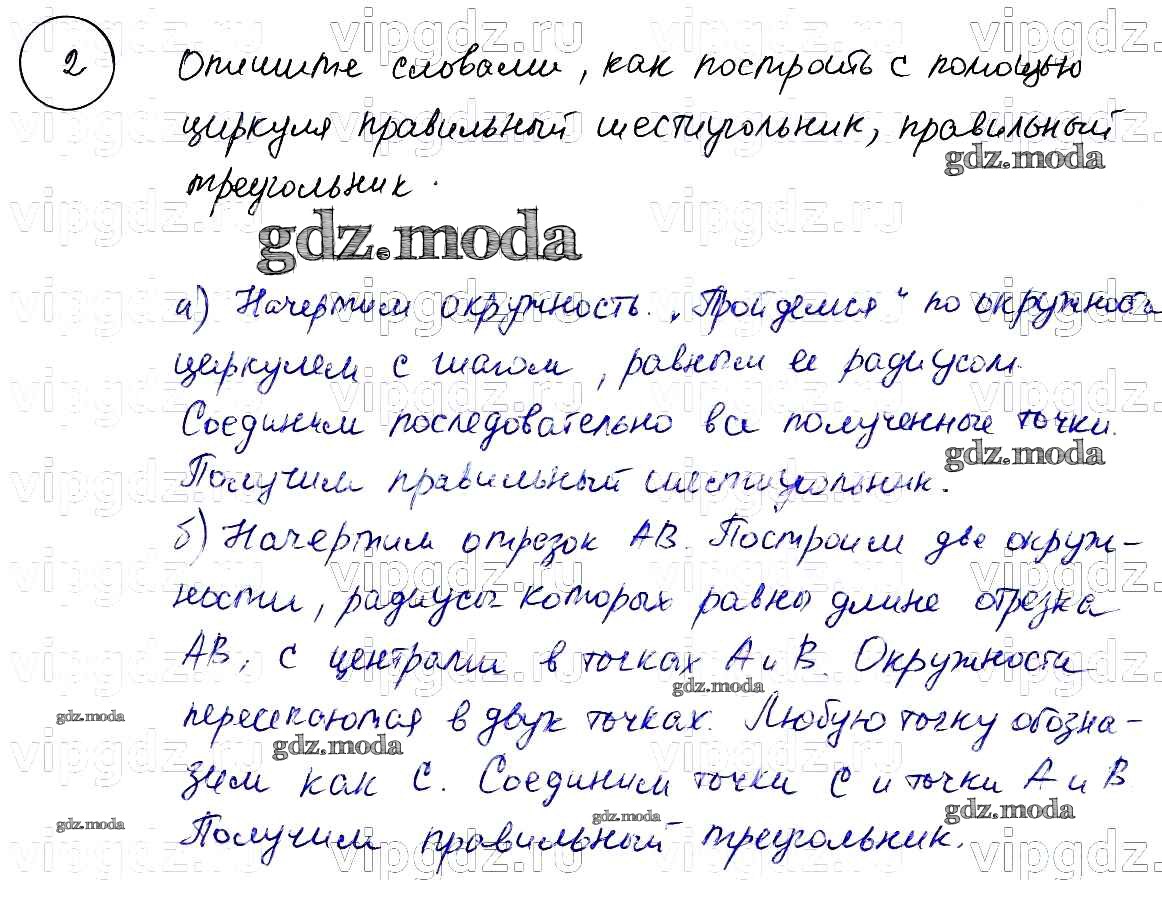 2 Опишите словами, как построить с помощью
циркуля правильный шестиугольник, правильный
gdz.moda
треугольник.
gdz.moda
а) Начертим окружность. „Пройдемся" по окружности
циркулем с шагом, равным ее радиусом.
Соединим последовательно все полученные точки.
gdz.moda
Получим правильный шестиугольник.
б) Начертим отрезок АВ. Построим две окруж-
ности, радиусы которых равны длине отрезка
АВ, с центрами в точках А и В. Окружности
gdz.moda
пересекаются в двух точках. Любую точку обозна-
gdz.moda
gdz.moda
чим как С. Соединим точки С и точки А и В.
gdz.moda
gdz.moda
gdz.moda
Получим правильный треугольник.
vipgdz.ru